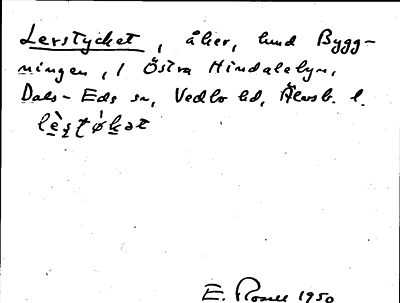 Lerstycket, åker, hmd Bygg-
ningen, 1 Östra Hindalebyn,
Dals-Eds sn, Vedbo hd, Älvsb. l.
E. Rosell 1950